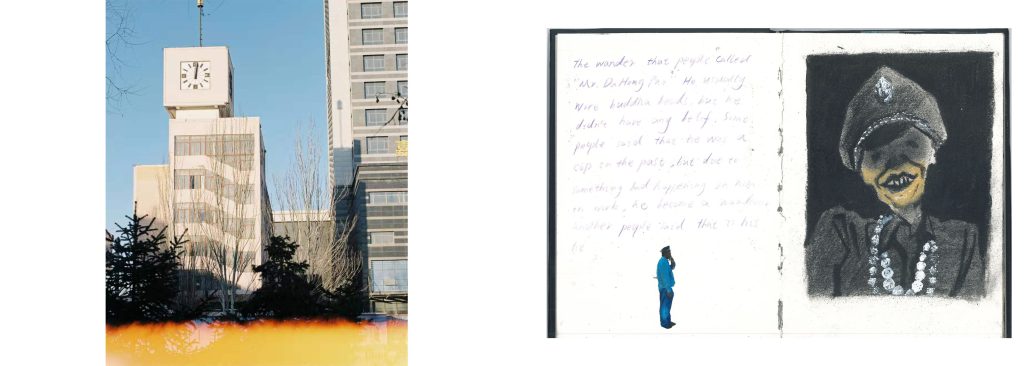 The wander that people called
"Mr. DaHong Pao" He usually
wore buddha beads, but he
didn't have any belif. Some
people said that he was a
cop in the past, but due to
something bad happening on him
in work, he became a wander,
another people said that it was
lie